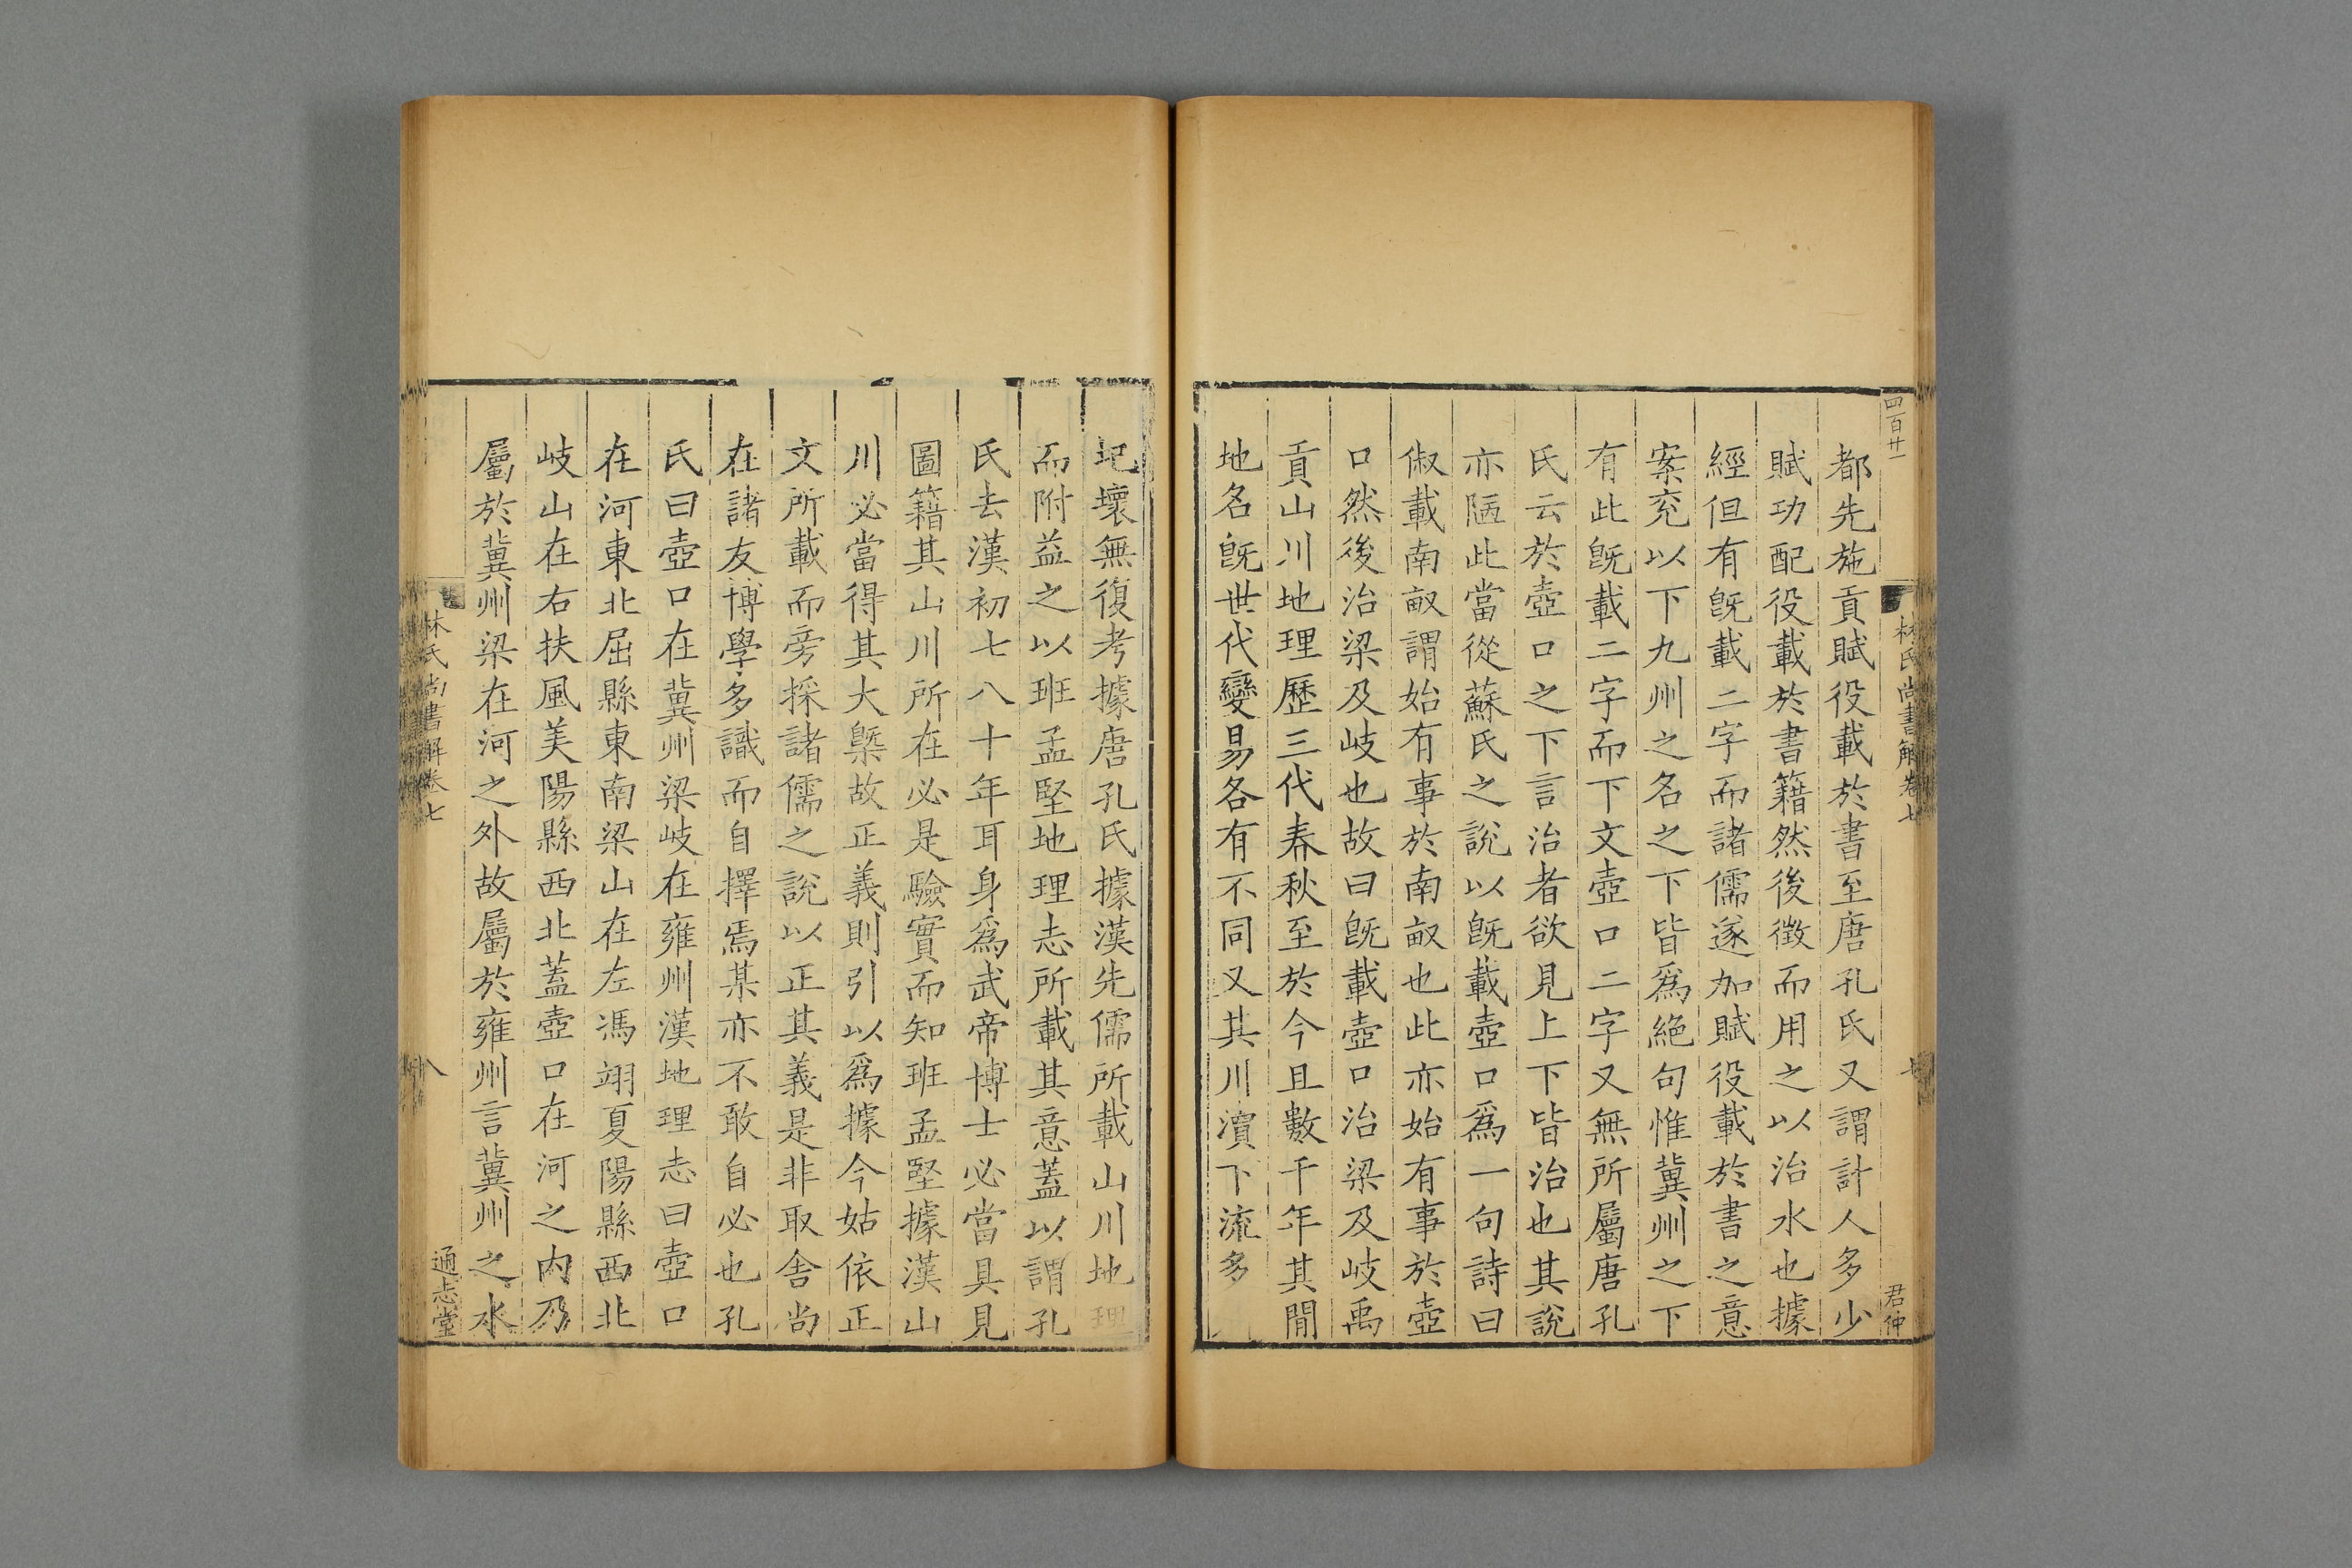 四百廿一
林氏尚書解卷七
七
君仲
都先施貢賦役載於書至唐孔氏又謂計人多少
賦功配役載於書籍然後徴而用之以治水也據
經但有旣載二字而諸儒遂加賦役載於書之意
案兖以下九州之名之下皆爲絶句惟冀州之下
有此旣載二字而下文壺口二字又無所屬唐孔
氏云於壺口之下言治者欲見上下皆治也其說
亦陋此當從蘇氏之說以旣載壺口爲一句詩曰
俶載南畝謂始有事於南畝也此亦始有事於壺
口然後治梁及岐也故曰旣載壺口治梁及岐禹
貢山川地理歷三代春秋至於今且數千年其閒
地名旣世代變易各有不同又其川瀆下流多
圮壞無復考據唐孔氏據漢先儒所載山川地理
而附益之以班孟堅地理志所載其意蓋以謂孔
氏去漢初七八十年耳身爲武帝博士必當具見
圖籍其山川所在必是驗實而知班孟堅據漢山
川必當得其大槩故正義則引以爲據今姑依正
文所載而旁採諸儒之說以正其義是非取舍尚
在諸友博學多識而自擇焉某亦不敢自必也孔
氏曰壺口在冀州梁岐在雍州漢地理志曰壺口
在河東北屈縣東南梁山在左馮翊夏陽縣西北
岐山在右扶風美陽縣西北蓋壺口在河之内乃
屬於冀州梁在河之外故屬於雍州言冀州之水
林氏尚書解卷七
八
通志堂